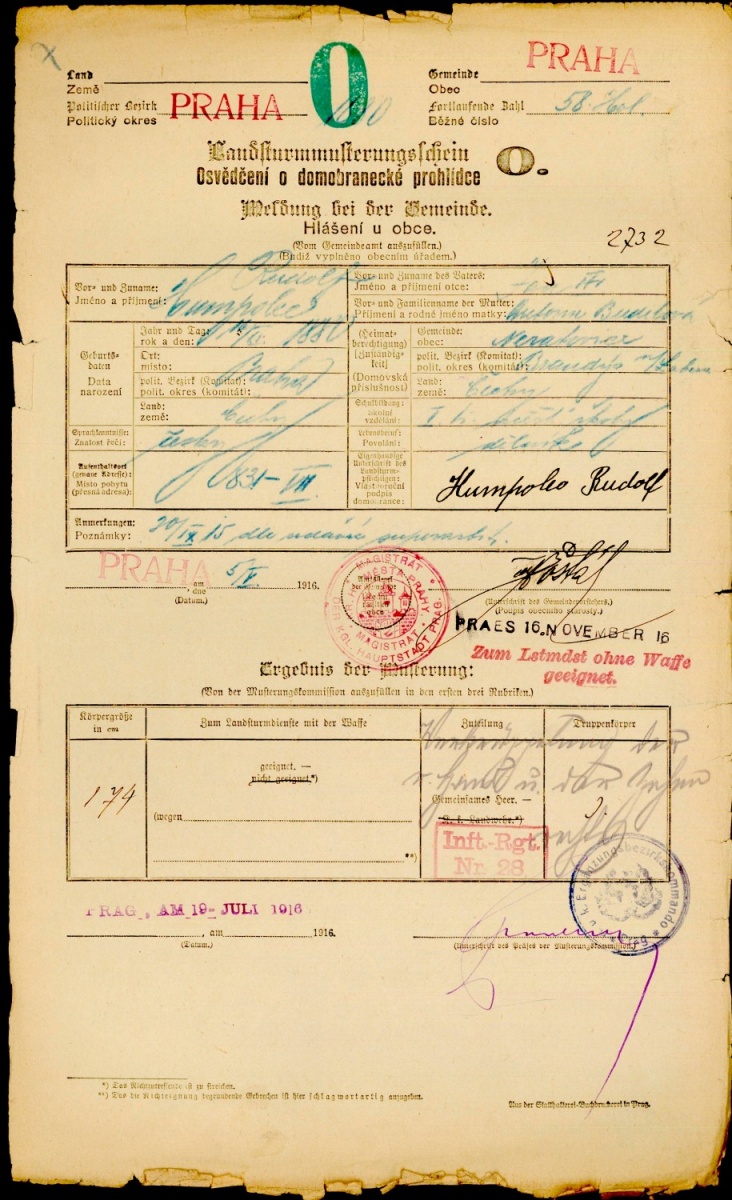 Land
Země
PRAHA
Politischer Bezirk
Politický okres
PRAHA
O
Gemeinde
Obec
PRAHA
Fortlaufende Zahl
Běžné číslo
58.
Landsturmmusterungsschein
Osvědčení o domobranecké prohlídce
O.
Meldung bei der Gemeinde.
Hlášení u obce.
(Vom Gemeindeamt auszufüllen.)
(Budiž vyplněno obecním úřadem.)
2732
Vor- und Zuname:
Jméno a příjmení:
Rudolf
Humpolec
Vor- und Zuname des Vaters:
Jméno a příjmení otce:
Vor- und Familienname der Mutter:
Příjmení a rodné jméno matky:
Geburts-
daten
Data
narození
Jahr und Tag:
rok a den:
1880
Ort:
místo:
Praha
polit. Bezirk (Komitat):
polit. okres (komitát):
Land:
země:
Čechy
(Heimat-
berechtigung)
[Zuständig-
keit]
(Domovská
příslušnost)
Gemeinde:
obec:
Neratovice
polit. Bezirk (Komitat):
polit. okres (komitát):
Brandýs n/Labem
Land:
země:
Čechy
Sprachkenntnisse:
Znalost řečí:
česky
Schulbildung:
Školní
vzdělání:
Lebensberuf:
Povolání:
Aufenthaltsort
(genaue Adresse):
Místo pobytu
(přesná adresa):
831-VII
Eigenhändige
Unterschrift des
Landsturm-
pflichtigen:
Vlastnoruční
podpis
domobrance:
Humpolec Rudolf
Anmerkungen:
Poznámky:
20/IX 15 dle udání superarbit.
PRAHA
am
dne
5/V
1916.
(Datum.)
MAGISTRÁT
KR. HL. MĚSTA PRAHY
MAGISTRAT
DER KGL. HAUPTSTADT PRAG
(Unterschrift des Gemeindevorstehers.)
(Podpis obecního starosty.)
PRAES 16. NOVEMBER 16
Zum Lstmdst ohne Waffe
geeignet.
Ergebnis der Musterung:
(Von der Musterungskommission auszufüllen in den ersten drei Rubriken.)
Körpergröße
in cm
Zum Landsturmdienste mit der Waffe
Zuteilung
Truppenkörper
174
geeignet. —
nicht geeignet.*)
(wegen
**)
Gemeinsames Heer. —
K. k. Landwehr.*)
Verkrüppelung der
r. Hand u. der Zehen
rechts
Inft.-Rgt.
Nr. 28
k. u. k. Ergänzungsbezirkskommando
Prag
PRAG, AM 19. JULI 1916
, am
1916.
(Datum.)
(Unterschrift des Präses der Musterungskommission.)
*) Das Nichtzutreffende ist zu streichen.
**) Das die Nichteignung begründende Gebrechen ist hier schlagwortartig anzugeben.
Aus der Statthalterei-Buchdruckerei in Prag.